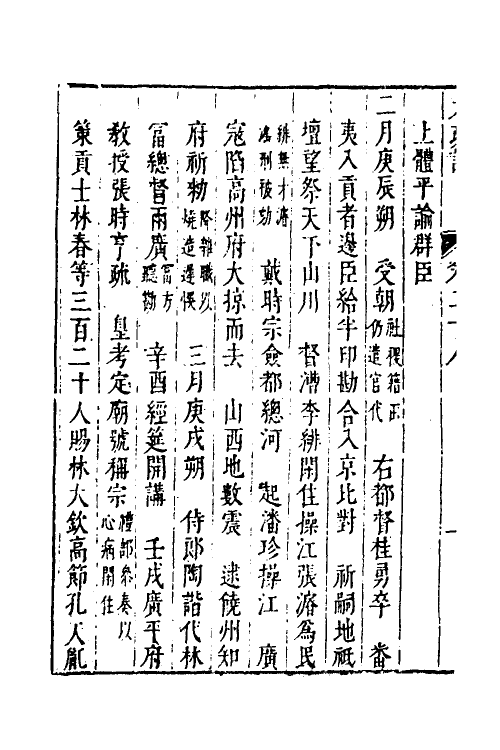 上體平諭群臣
二月庚辰朔　受朝社稷藉田仍遣官代　右都督桂勇卒　畨
夷入貢者邊臣給半印勘合入京比對　祈嗣地祇
壇望祭天下山川　督漕李緋閑住操江張濬為民
緋無才濬濫刑被劾　戴時宗僉都總河　起潘珍操江　廣
寇陷高州府大掠而去　山西地數震　逮饒州知
府祈勑降雜職以燒造遲悮　三月庚戌朔　侍郎陶諧代林
富總督兩廣富方聽勘　辛酉經筵開講　壬戌廣平府
教授張時亨疏　皇考定廟號稱宗禮部參奏以心病閑住
策貢士林春等三百二十人賜林大欽高節孔天胤